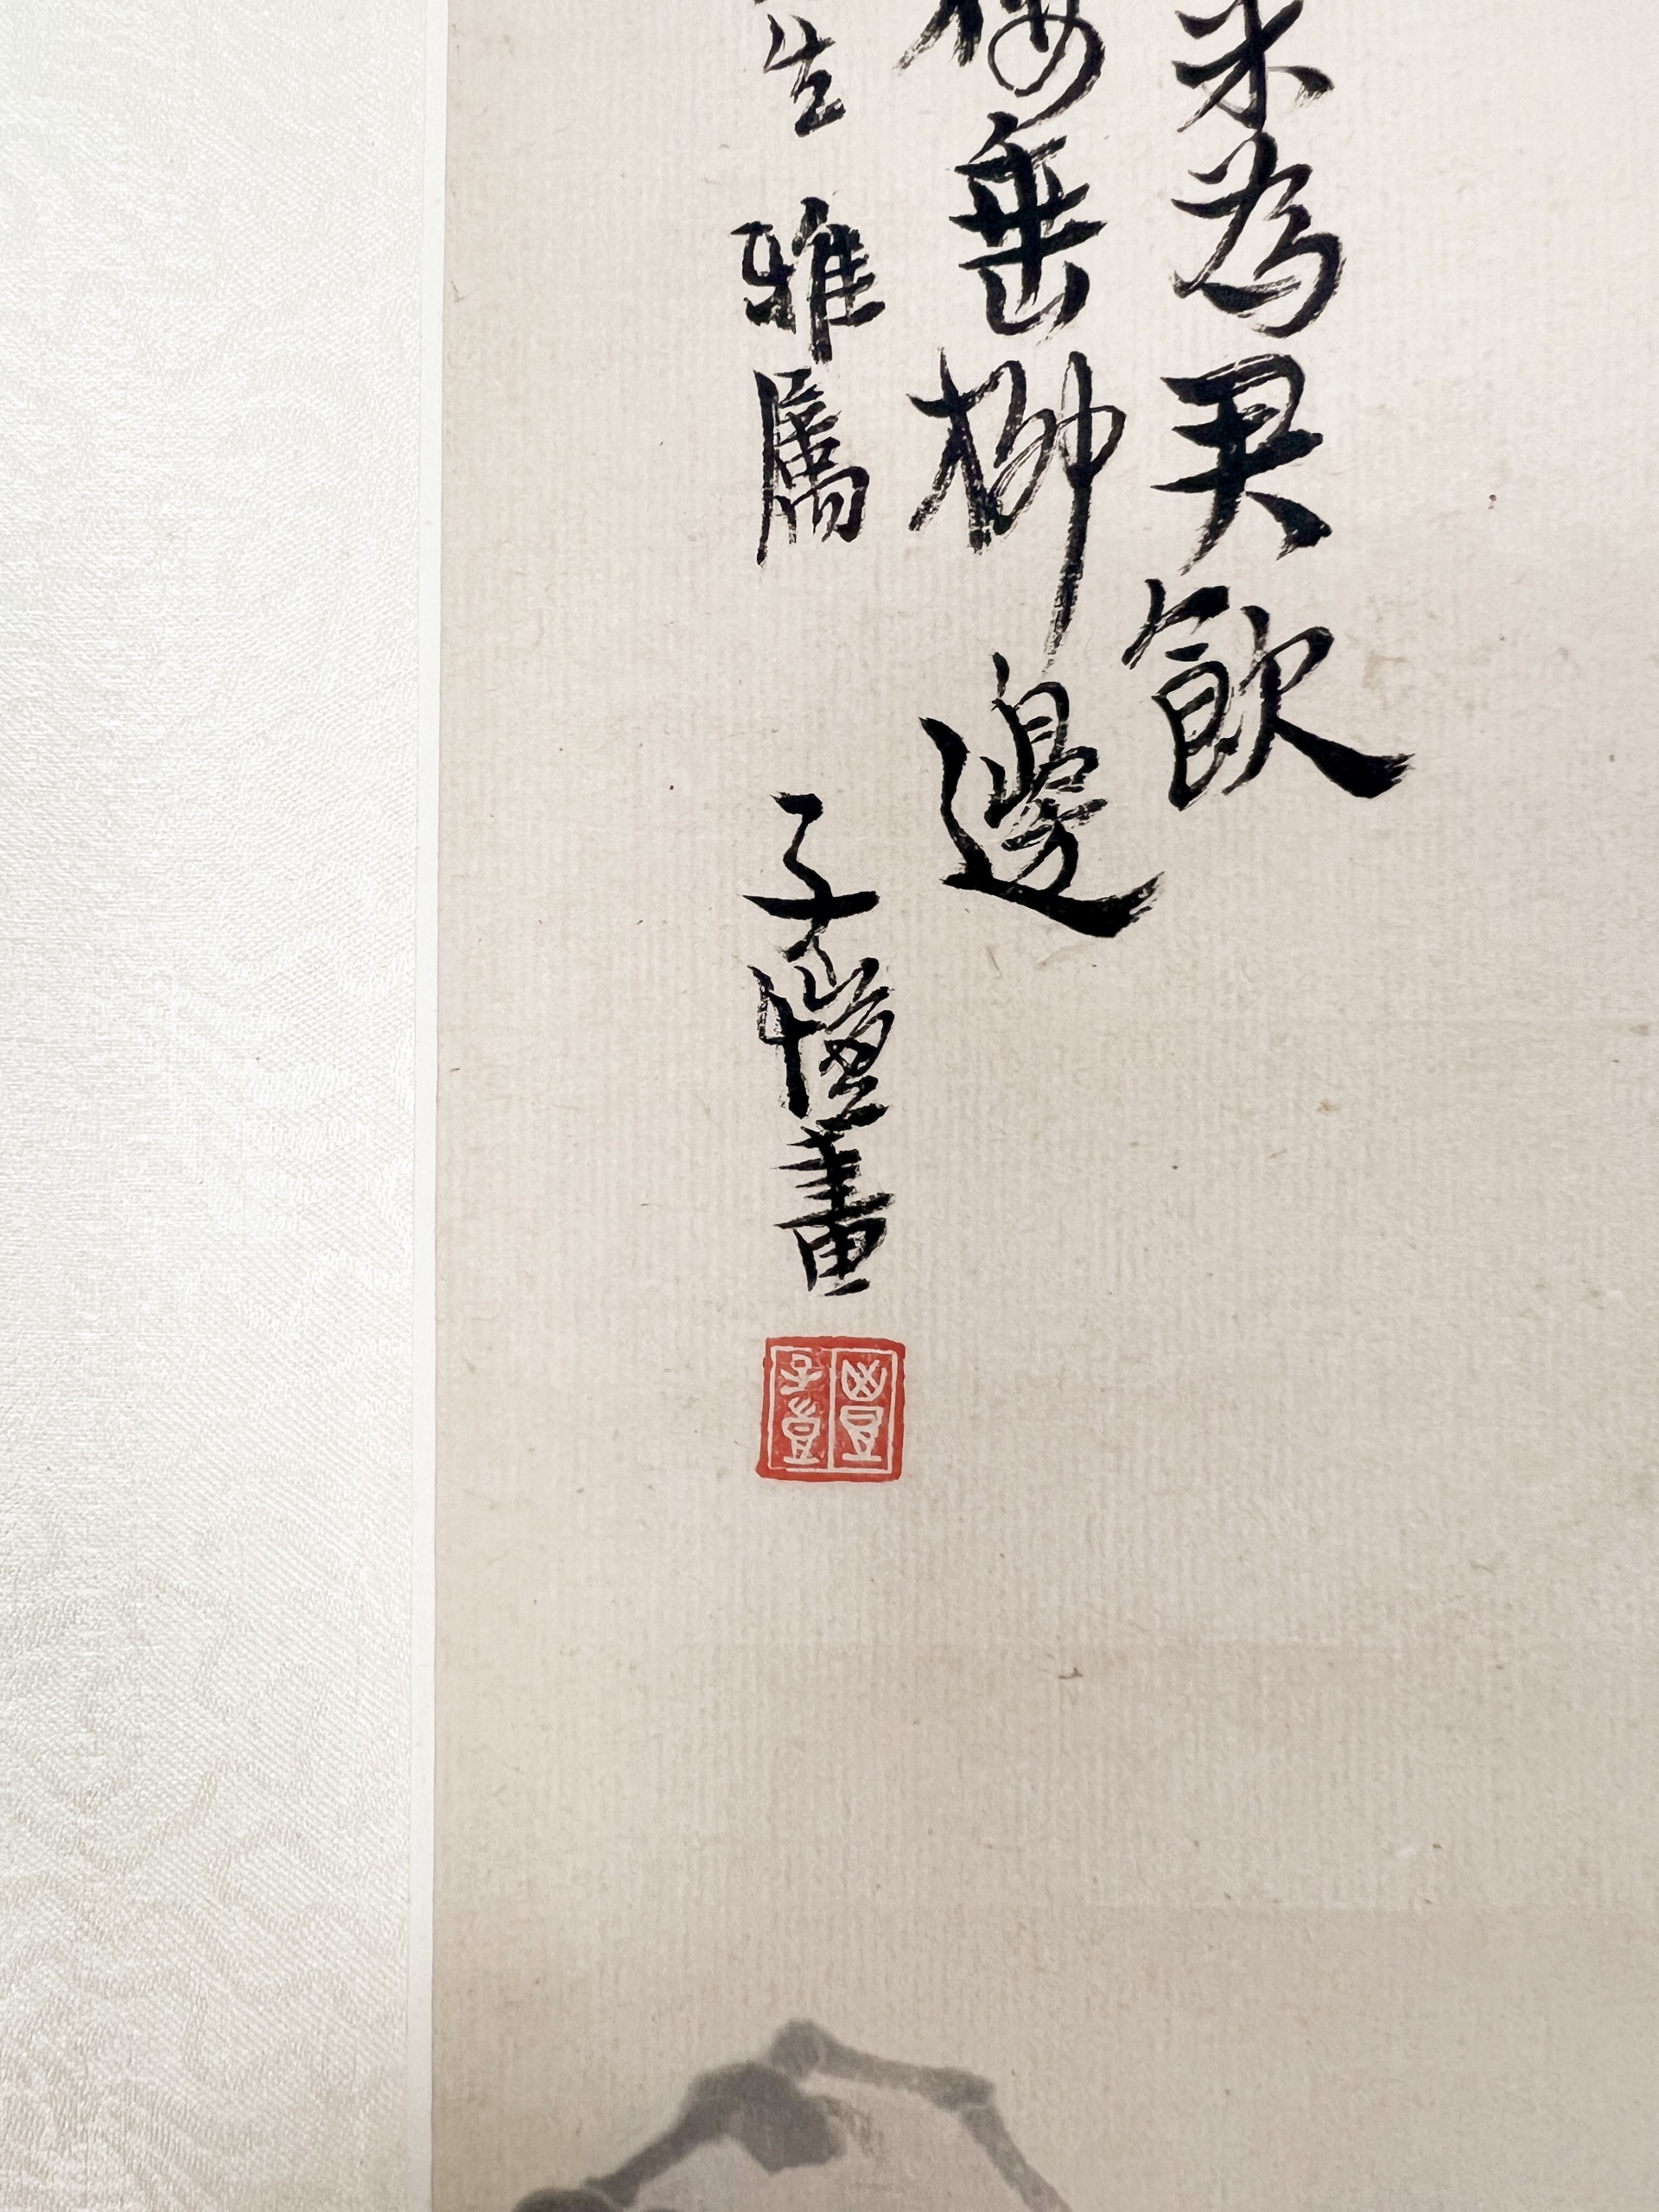 為君飲
樓垂柳邊
生 雅屬 子愷畫
豐子愷